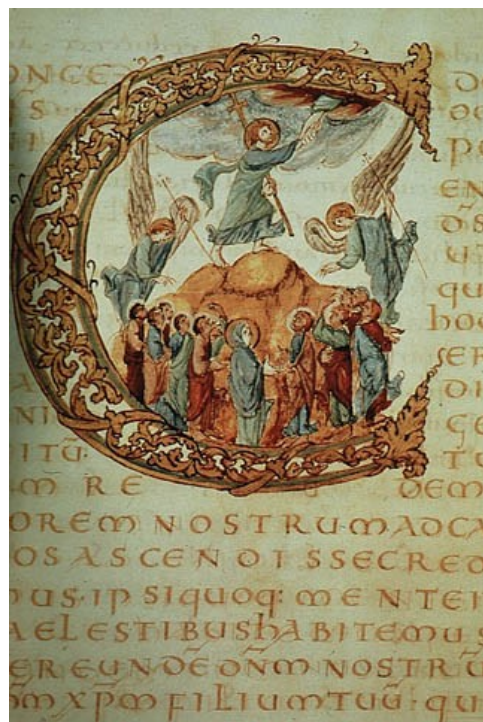 ONCE DE
S
P
EN
DS
UT
QUI
hOD
SER
DI
NI GE
ITŪ TU
M RE DEM
OREM NOSTRUM AD CA
OS ASCENDISSE CRED
US · IPSI QUOQ: MENTE I
AELESTIBUS hABITEMUS
ER EUNDE DNM NOSTRŪ
M XPM FILIUM TUŪ · QU